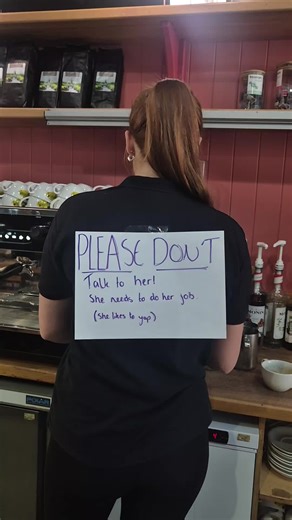 PLEASE DON'T
Talk to her!
She needs to do her job.
(She likes to yap)